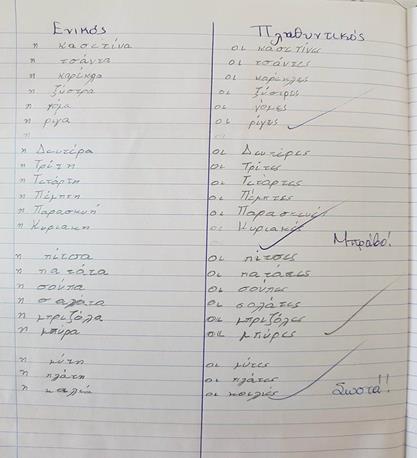 Ενικός Πληθυντικός
η κασετίνα οι κασετίνες
η τσάντα οι τσάντες
η καρέκλα οι καρέκλες
η ξύστρα οι ξύστρες
η γόμα οι γόμες
η ρίγα οι ρίγες
η Δευτέρα οι Δευτέρες
η Τρίτη οι Τρίτες
η Τετάρτη οι Τετάρτες
η Πέμπτη οι Πέμπτες
η Παρασκευή οι Παρασκευές
η Κυριακή οι Κυριακές
Μπράβο!
η πίτσα οι πίτσες
η πατάτα οι πατάτες
η σούπα οι σούπες
η σαλάτα οι σαλάτες
η μπριζόλα οι μπριζόλες
η μπύρα οι μπύρες
η μύτη οι μύτες
η πλάτη οι πλάτες
η οι κοιλιές
Σωστά!!